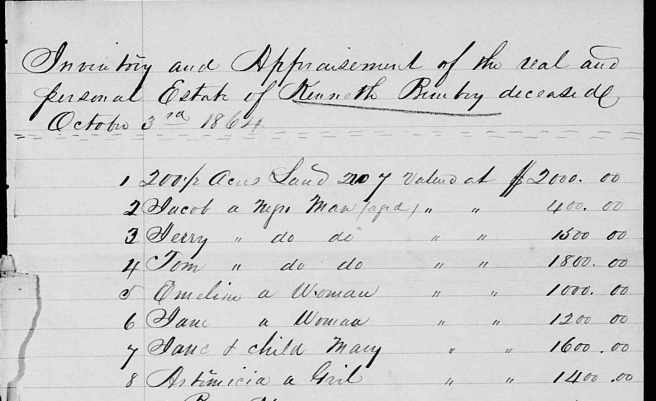 Inventory and Appraisement of the real and
personal Estate of Kenneth deceased
October 3rd 1864
1 200 1/2 Acres Land 207 Valued at $2000.00
2 Jacob a Negro Man (aged) " " 400.00
3 Jerry " do do " " 1500 00
4 Tom " do do " " 1800.00
5 Emeline a Woman " " 1000.00
6 Jane a Woman " " 1200 00
7 Jane & child Mary " " 1600.00
8 Artimicia a Girl " " 1400.00